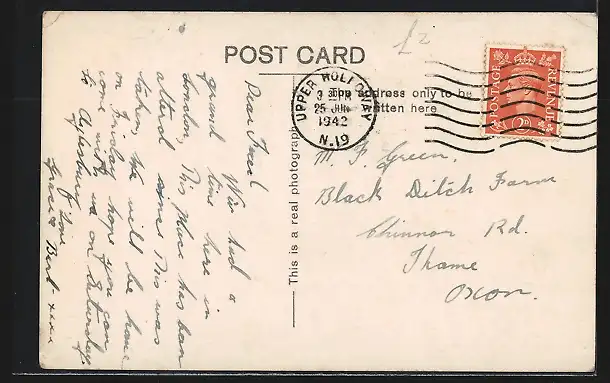 £2
POST CARD
POSTAGE
REVENUE
UPPER HOLLOWAY
3 30 PM
25 JUN
1942
N.19
The address only to be
written here
This is a real photograph
Dear Fred
We had a
grand time here in
London. This place has been
altered since this was
taken. We will be home
on Friday hope you can
come with us on Saturday
to Aylesbury
Love
Grace & Bert - xxx
M. F. Green.
Black Ditch Farm
Chinnor Rd.
Thame
Oxon.